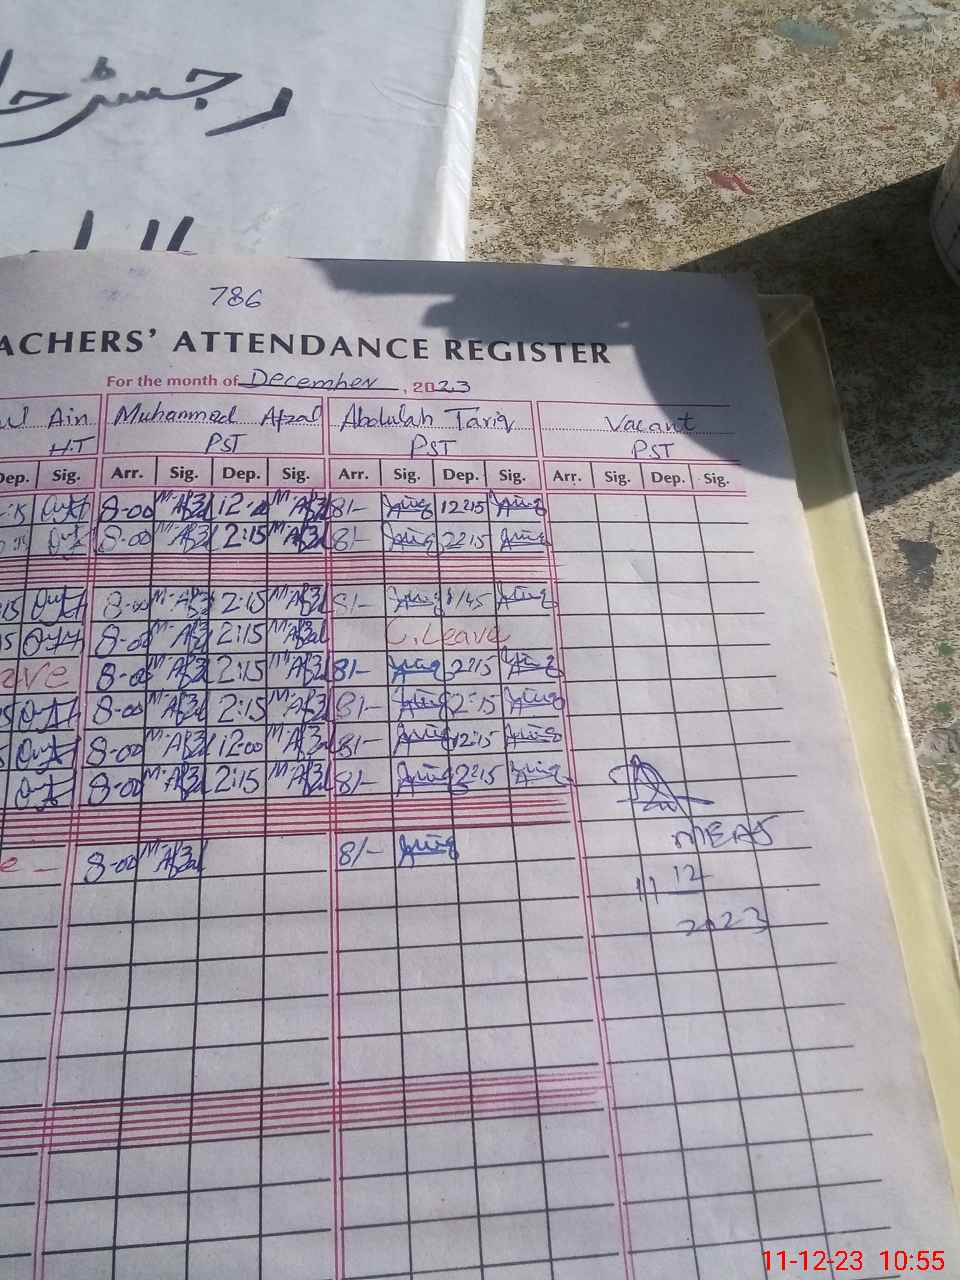 رجسٹر حا
786
ACHERS' ATTENDANCE REGISTER
For the month of December, 2023
ul Ain Muhammad Afzal Abdulah Tariq Vacant
H.T PST PST PST
Dep. Sig. Arr. Sig. Dep. Sig. Arr. Sig. Dep. Sig. Arr. Sig. Dep. Sig.
:15 8-00 M-Afzal M-Afzal 8/- 12:15
8-00 M-Afzal 2:15 M-Afzal 8/- 2:15
:15 8-00 M-Afzal 2:15 M-Afzal 8/- 1/45
15 8-00 M-Afzal 2:15 M-Afzal C. Leave
ave 8-00 M-Afzal 2:15 M-Afzal 8/- 2:15
15 8-00 M-Afzal 2:15 M-Afzal 8/- 2:15
8-00 M-Afzal 12:00 M-Afzal 8/- 12:15
8-00 M-Afzal 2:15 M-Afzal 8/- 2:15
MEAS
e - 8-00 M-Afzal 8/-
11 12
2023
11-12-23 10:55